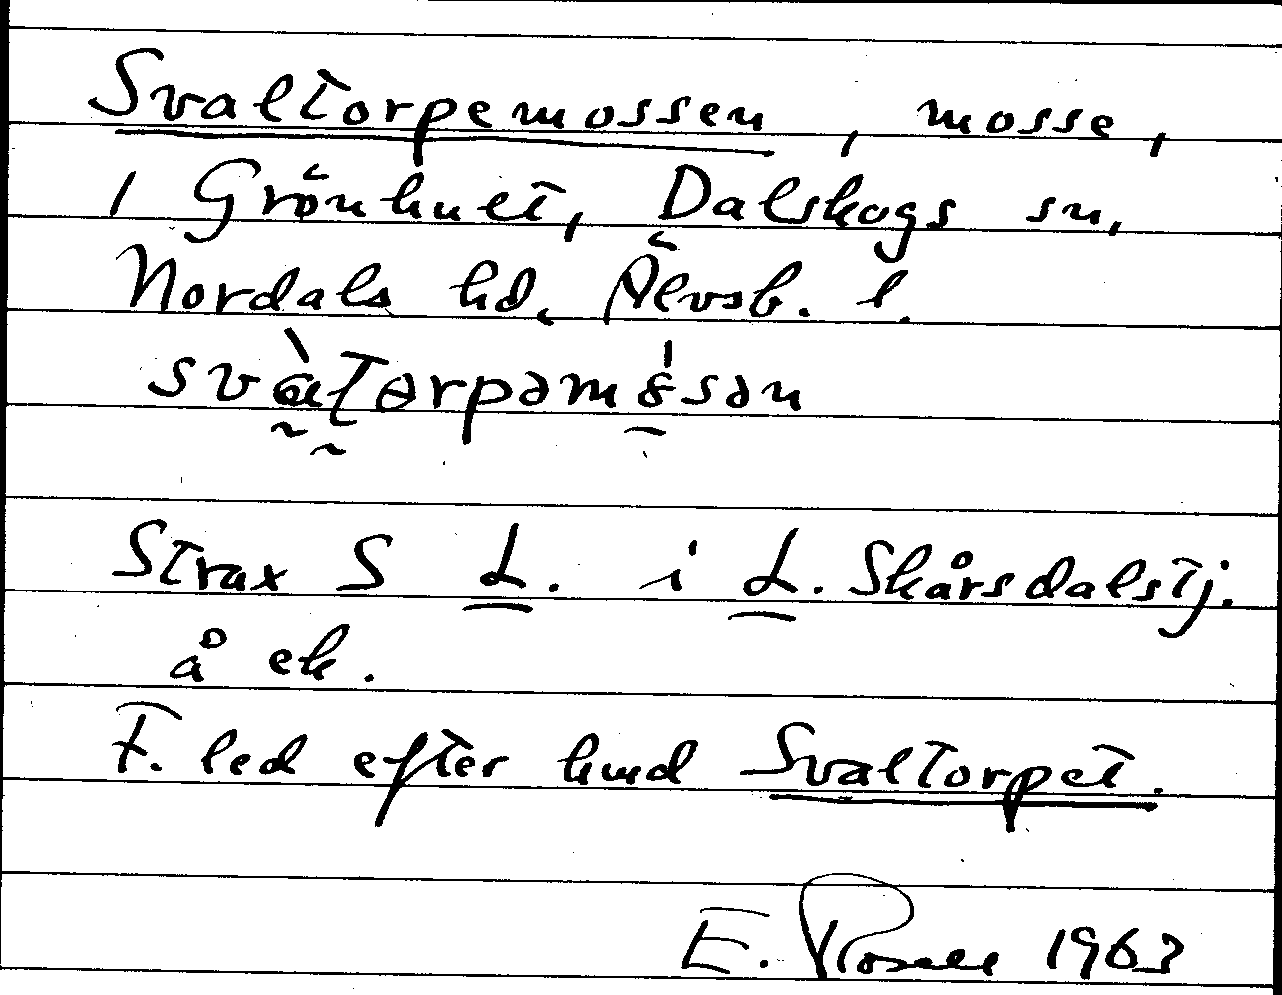 Svaltorpemossen, mosse,
i Grönhult, Dalskogs sn,
Nordals hd, Älvsb. l.
Strax S L. i L. Skårsdalstj.
å ek.
F. led efter hmd Svaltorpet.
E. Rosell 1963